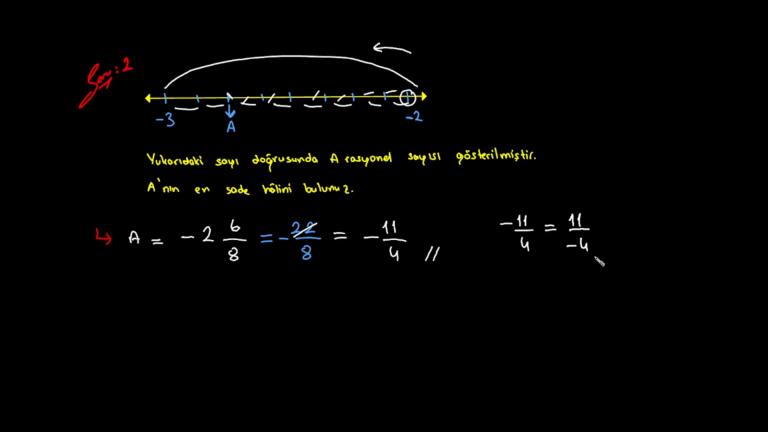 Soru: 2
-3 A -2
Yukarıdaki sayı doğrusunda A rasyonel sayısı gösterilmiştir.
A'nın en sade hâlini bulunuz.
A = -2 6/8 = -22/8 = -11/4 // -11/4 = 11/-4